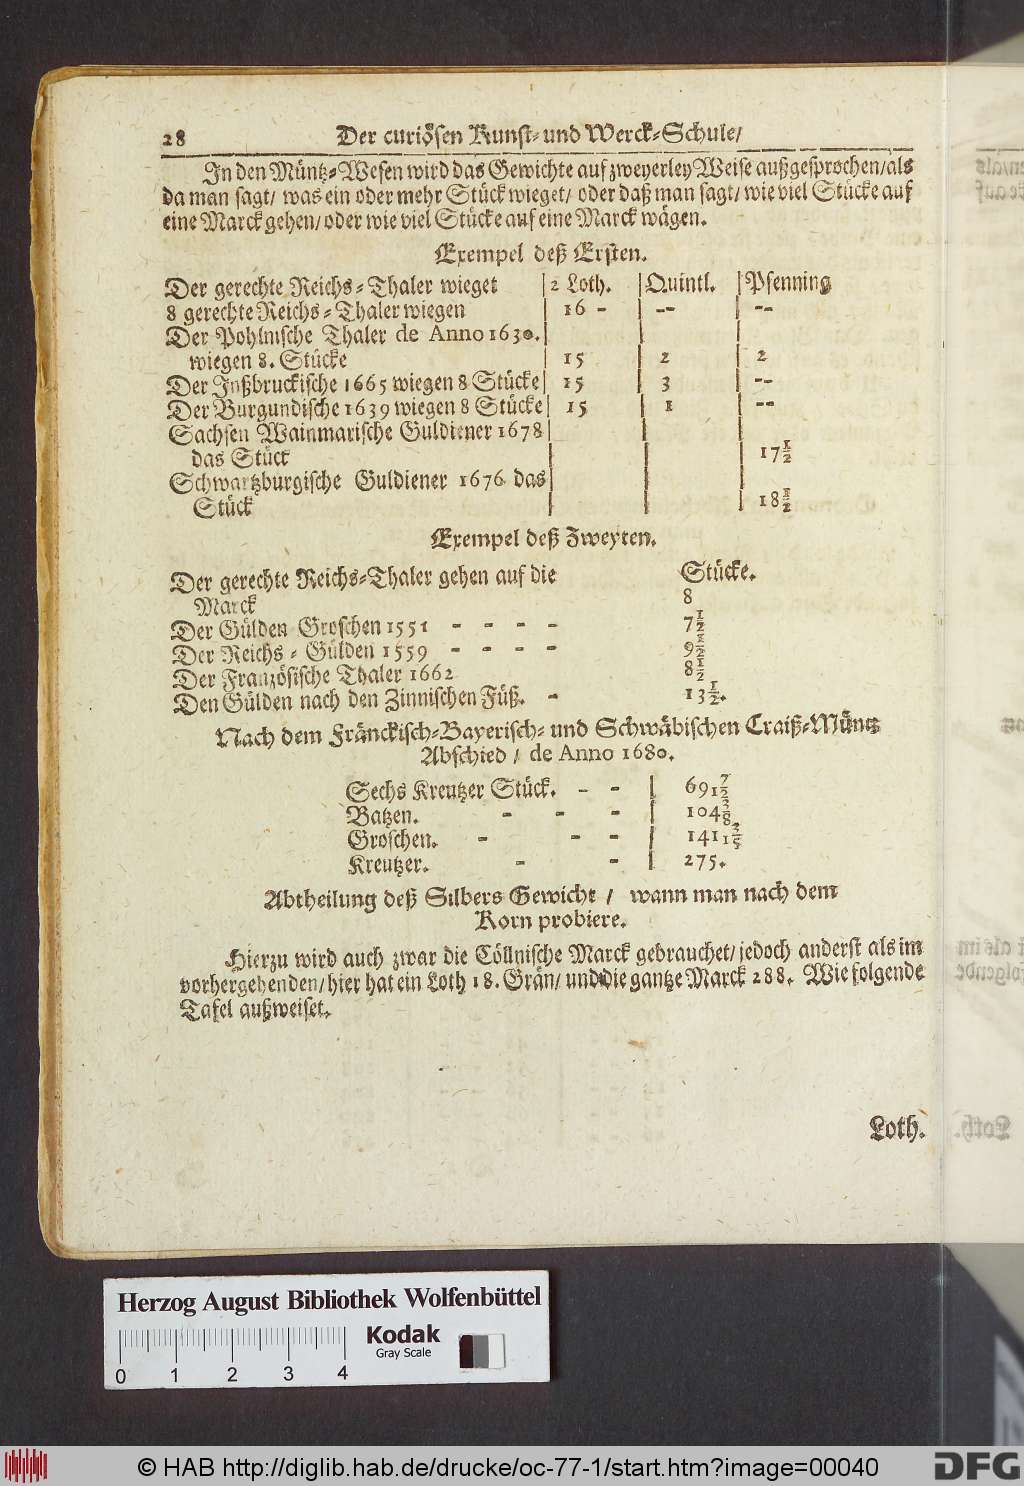 28 Der curiösen Kunst- und Werck-Schule/
In den Müntz-Wesen wird das Gewichte auf zweyerley Weise außgesprochen/als
da man sagt/ was ein oder mehr Stück wieget/ oder daß man sagt/ wie viel Stücke auf
eine Marck gehen/ oder wie viel Stücke auf eine Marck wägen.
Exempel deß Ersten.
Der gerechte Reichs-Thaler wieget | 2 Loth. | Quintl. | Pfenning
8 gerechte Reichs-Thaler wiegen | 16 - | -- | --
Der Pohlnische Thaler de Anno 1630. | | |
wiegen 8. Stücke | 15 | 2 | 2
Der Inßbruckische 1665 wiegen 8 Stücke | 15 | 3 | --
Der Burgundische 1639 wiegen 8 Stücke | 15 | 1 | --
Sachsen Wainmarische Guldiener 1678 | | |
das Stück | | | 17 1/2
Schwartzburgische Guldiener 1676 das | | |
Stück | | | 18 1/2
Exempel deß Zweyten.
Der gerechte Reichs-Thaler gehen auf die Stücke.
Marck 8
Der Gülden Groschen 1551 - - - - 7 1/2
Der Reichs-Gülden 1559 - - - - 9 1/2
Der Französische Thaler 1662 8 1/2
Den Gülden nach den Zinnischen Füß. - 13 1/2.
Nach dem Fränckisch-Bayerisch- und Schwäbischen Craiß-Müntz
Abschied / de Anno 1680.
Sechs Kreutzer Stück. - - | 69
Batzen. - - - | 104
Groschen. - - - | 141
Kreutzer. - - | 275.
Abtheilung deß Silbers Gewicht / wann man nach dem
Korn probiere.
Hierzu wird auch zwar die Cöllnische Marck gebrauchet/ jedoch anderst als im
vorhergehenden/ hier hat ein Loth 18. Grän/ und die gantze Marck 288. Wie folgende
Tafel außweiset.
Loth.
Herzog August Bibliothek Wolfenbüttel
Kodak
Gray Scale
0 1 2 3 4
© HAB http://diglib.hab.de/drucke/oc-77-1/start.htm?image=00040
DFG